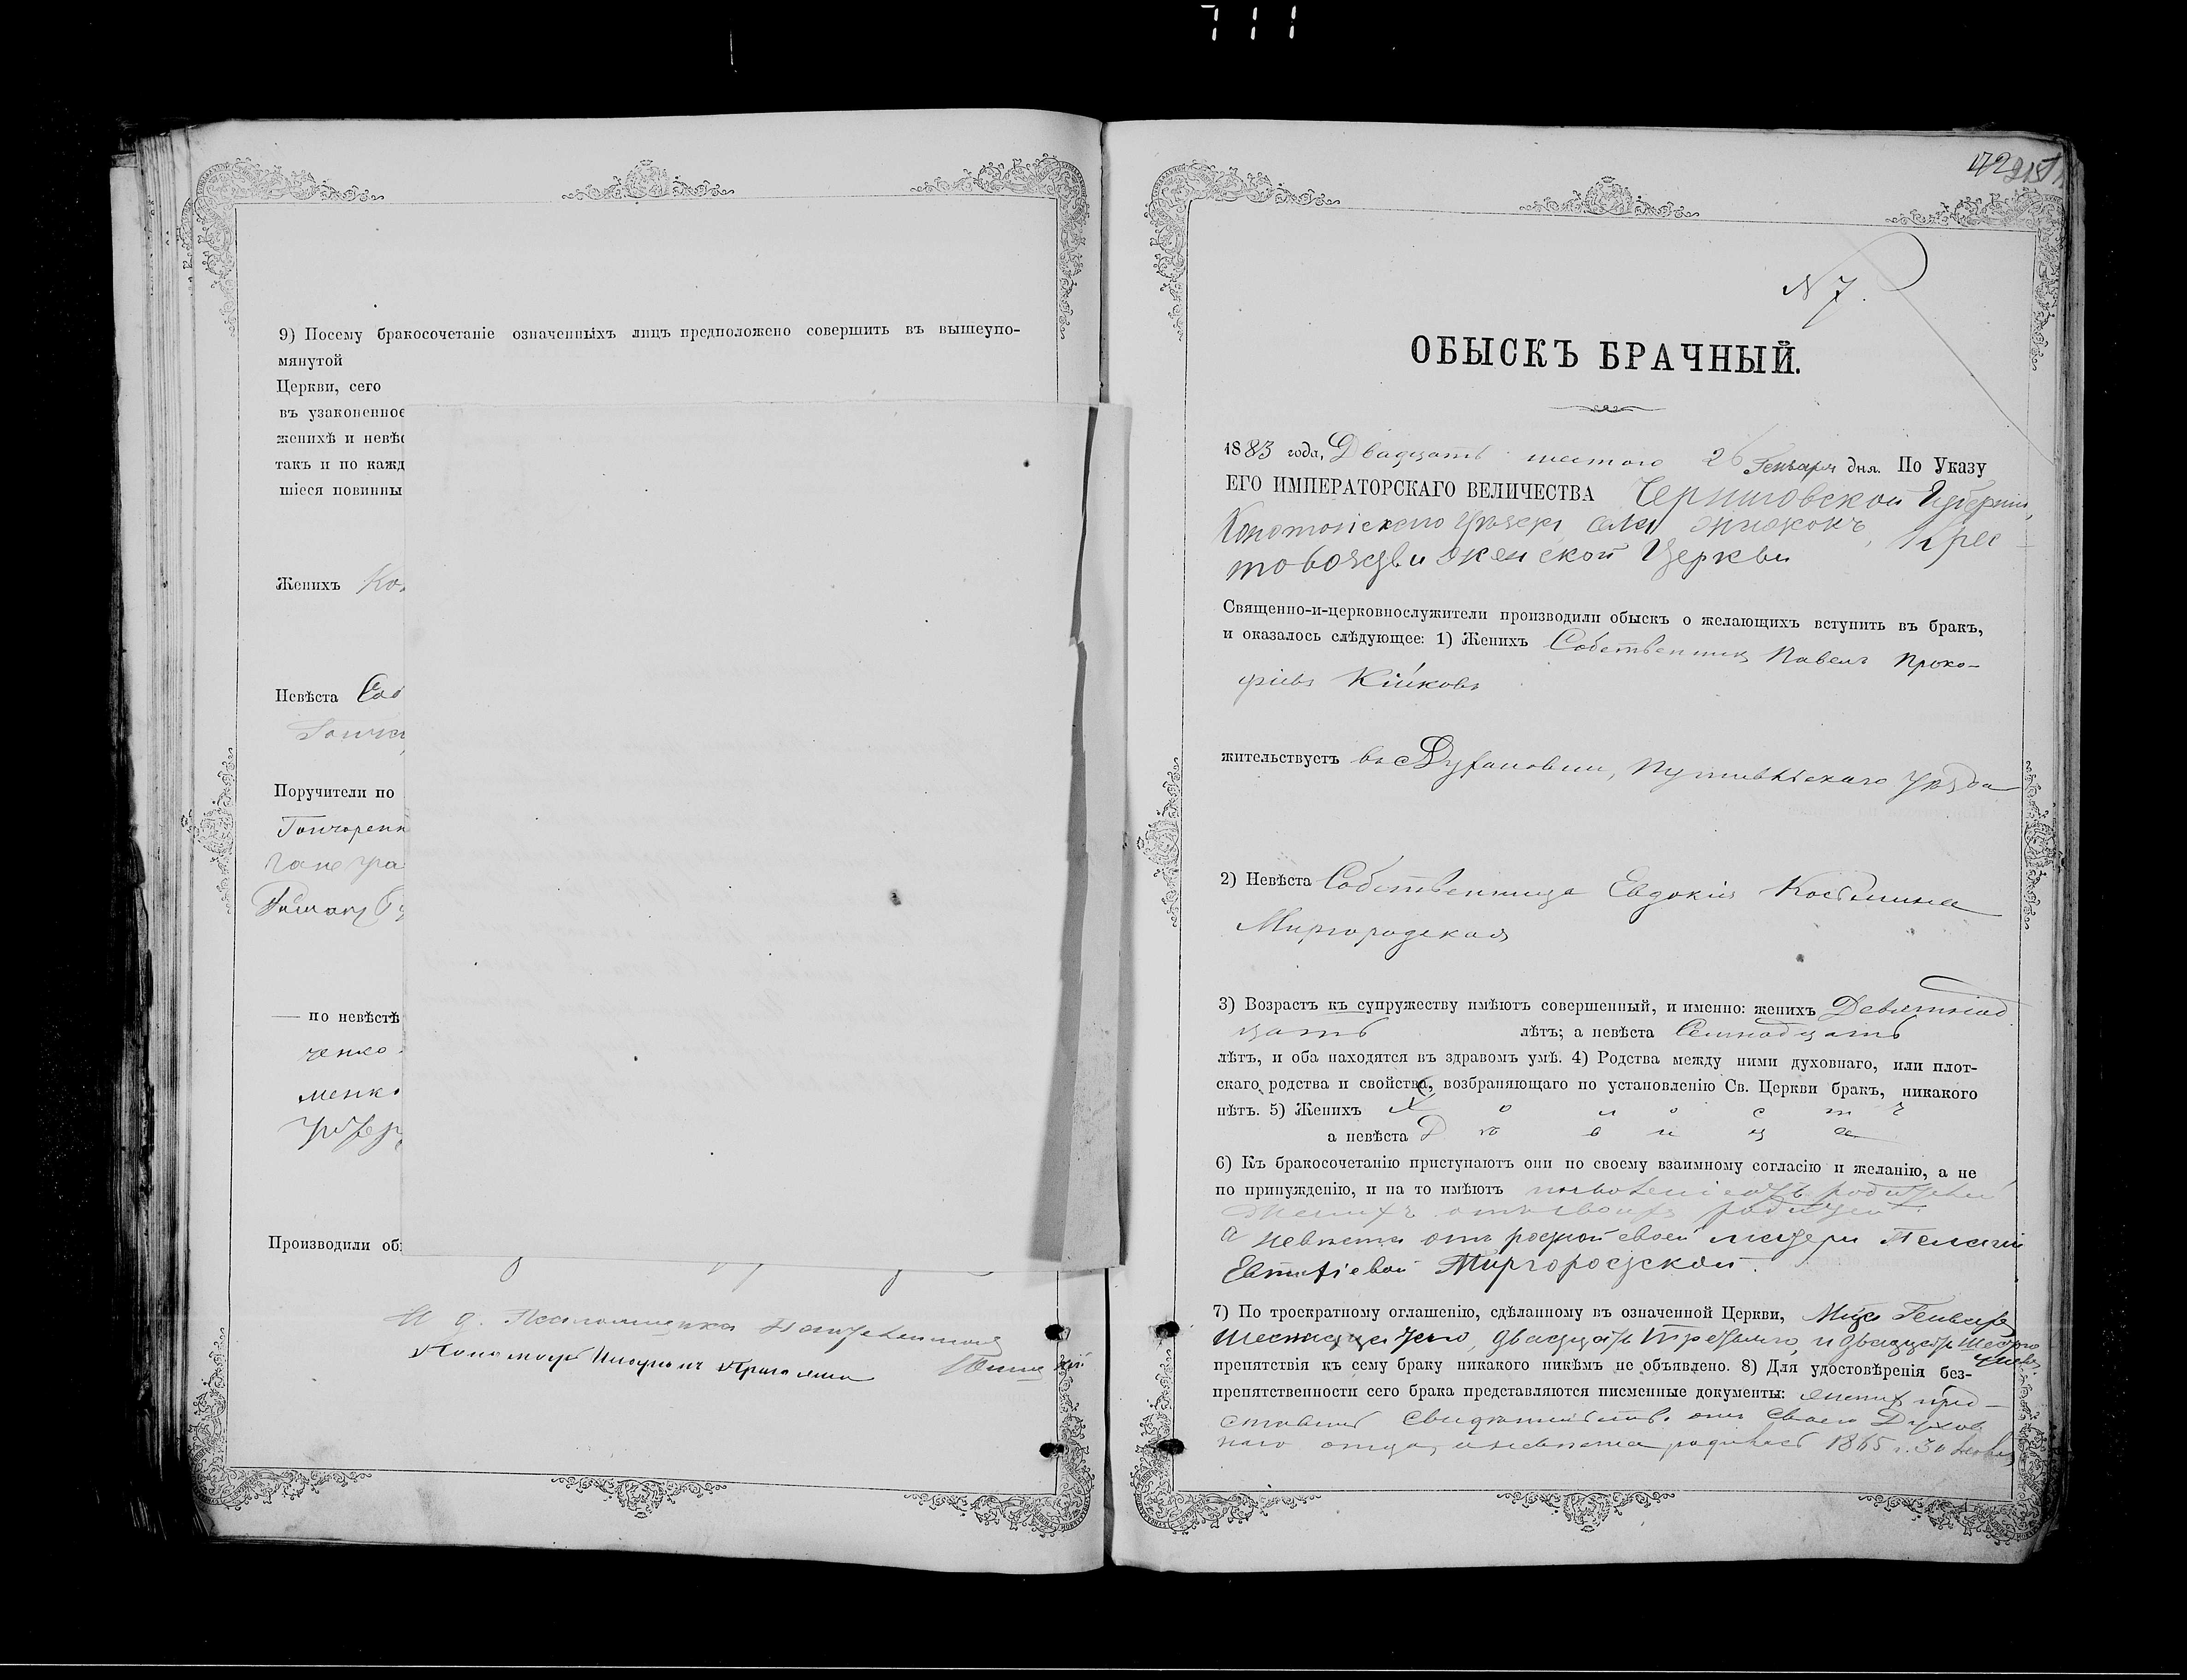 711
9) Посему бракосочетаніе означенныхъ лицъ предположено совершить въ вышеупо-
мянутой
Церкви, сего
въ узаконенное
женихѣ и невѣс
такъ и по кажд
шіеся повинны
Женихъ
Невѣста
Поручители по
Гончаренк
— по невѣстѣ
ченко
менко
Производили об
И. д. Псаломщика
172
№ 7.
ОБЫСКЪ БРАЧНЫЙ.
1883 года, Двадцать шестого 26 Генваря дня. По Указу
ЕГО ИМПЕРАТОРСКАГО ВЕЛИЧЕСТВА Черниговской Губерніи,
Конотопскаго Уѣзда, села Крес-
товоздвиженской Церкви
Священно-и-церковнослужители производили обыскъ о желающихъ вступить въ бракъ,
и оказалось слѣдующее: 1) Женихъ Собственникъ Павелъ Проко-
фіевъ Кійковъ
жительствуетъ въ Путивльскаго Уѣзда
2) Невѣста Собственница Евдокія Косьмина
Миргородская
3) Возрастъ къ супружеству имѣютъ совершенный, и именно: женихъ Девятнад
цать лѣтъ; а невѣста Семнадцать
лѣтъ, и оба находятся въ здравомъ умѣ. 4) Родства между ними духовнаго, или плот-
скаго родства и свойства, возбраняющаго по установленію Св. Церкви бракъ, никакого
нѣтъ. 5) Женихъ Холостъ
а невѣста Дѣвица
6) Къ бракосочетанію приступаютъ они по своему взаимному согласію и желанію, а не
по принужденію, и на то имѣютъ родителей
Женихъ отъ своихъ родителей
а невѣста отъ родной своей матери Пелагіи
Евтихіевой Миргородской.
7) По троекратному оглашенію, сдѣланному въ означенной Церкви, Мца Генваря
Шестнадцатого, двадцать третьяго, и двадцать шестого
чиселъ
препятствія къ сему браку никакого никѣмъ не объявлено. 8) Для удостовѣренія без-
препятственности сего брака представляются писменные документы: женихъ пред-
ставилъ свидѣтельство отъ своего Духов
наго отца, а невѣста родилась 1865 г. 30